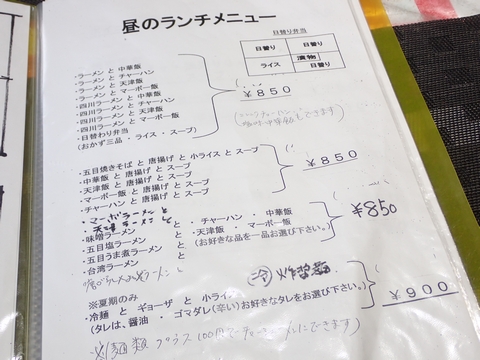 昼のランチメニュー
日替り弁当
日替り 日替り
漬物
ライス 日替り
・ラーメン と 中華飯
・ラーメン と チャーハン
・ラーメン と 天津飯
・ラーメン と マーボー飯
・四川ラーメン と 中華飯
・四川ラーメン と チャーハン
・四川ラーメン と 天津飯
・四川ラーメン と マーボー飯
・日替わり弁当
(おかず三品 ・ ライス ・ スープ)
¥850
・五目焼きそば と 唐揚げ と 小ライス と スープ
・中華飯 と 唐揚げ と スープ
・天津飯 と 唐揚げ と スープ
・マーボー飯 と 唐揚げ と スープ
・チャーハン と 唐揚げ と スープ
¥850
・マーボラーメン と
・天津ラーメン と
・味噌ラーメン と ・ チャーハン ・ 中華飯
・五目塩ラーメン と ・ 天津飯 ・ マーボー飯
・五目うま煮ラーメン と (お好きな品を一品お選び下さい。)
・台湾ラーメン と
¥850
※夏季のみ
・冷麺 と ギョーザ と 小ライス
(タレは、醤油 ・ ゴマダレ(辛い)お好きなタレをお選び下さい。)
¥900